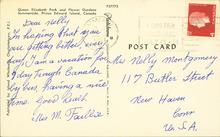 P37772
Queen Elizabeth Park and Flower Gardens
Summerside, Prince Edward Island, Canada
Dear Nelly
In hoping that you
are getting better, every
day. I am on vacation for
3 day Trough Canada
by bus, having a nice
time. Good Luck.
Mrs M.
POST CARD
Mrs Nelly Montgomery
117 Butler Street
New Haven
Conn
U.S.A.